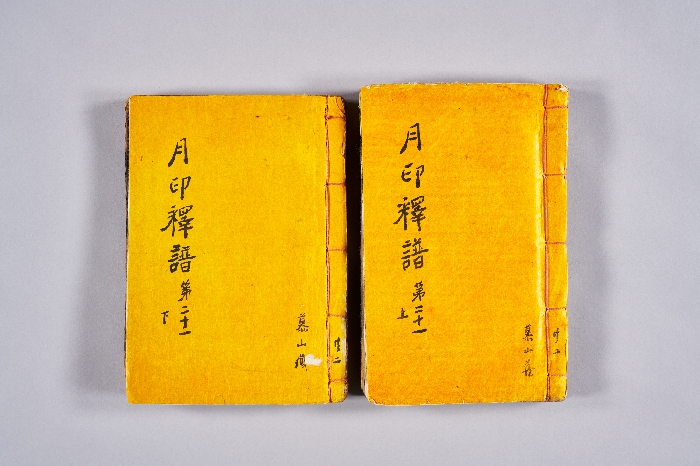 月印釋譜第二十一
上
慕山
月印釋譜第二十一
下
慕山